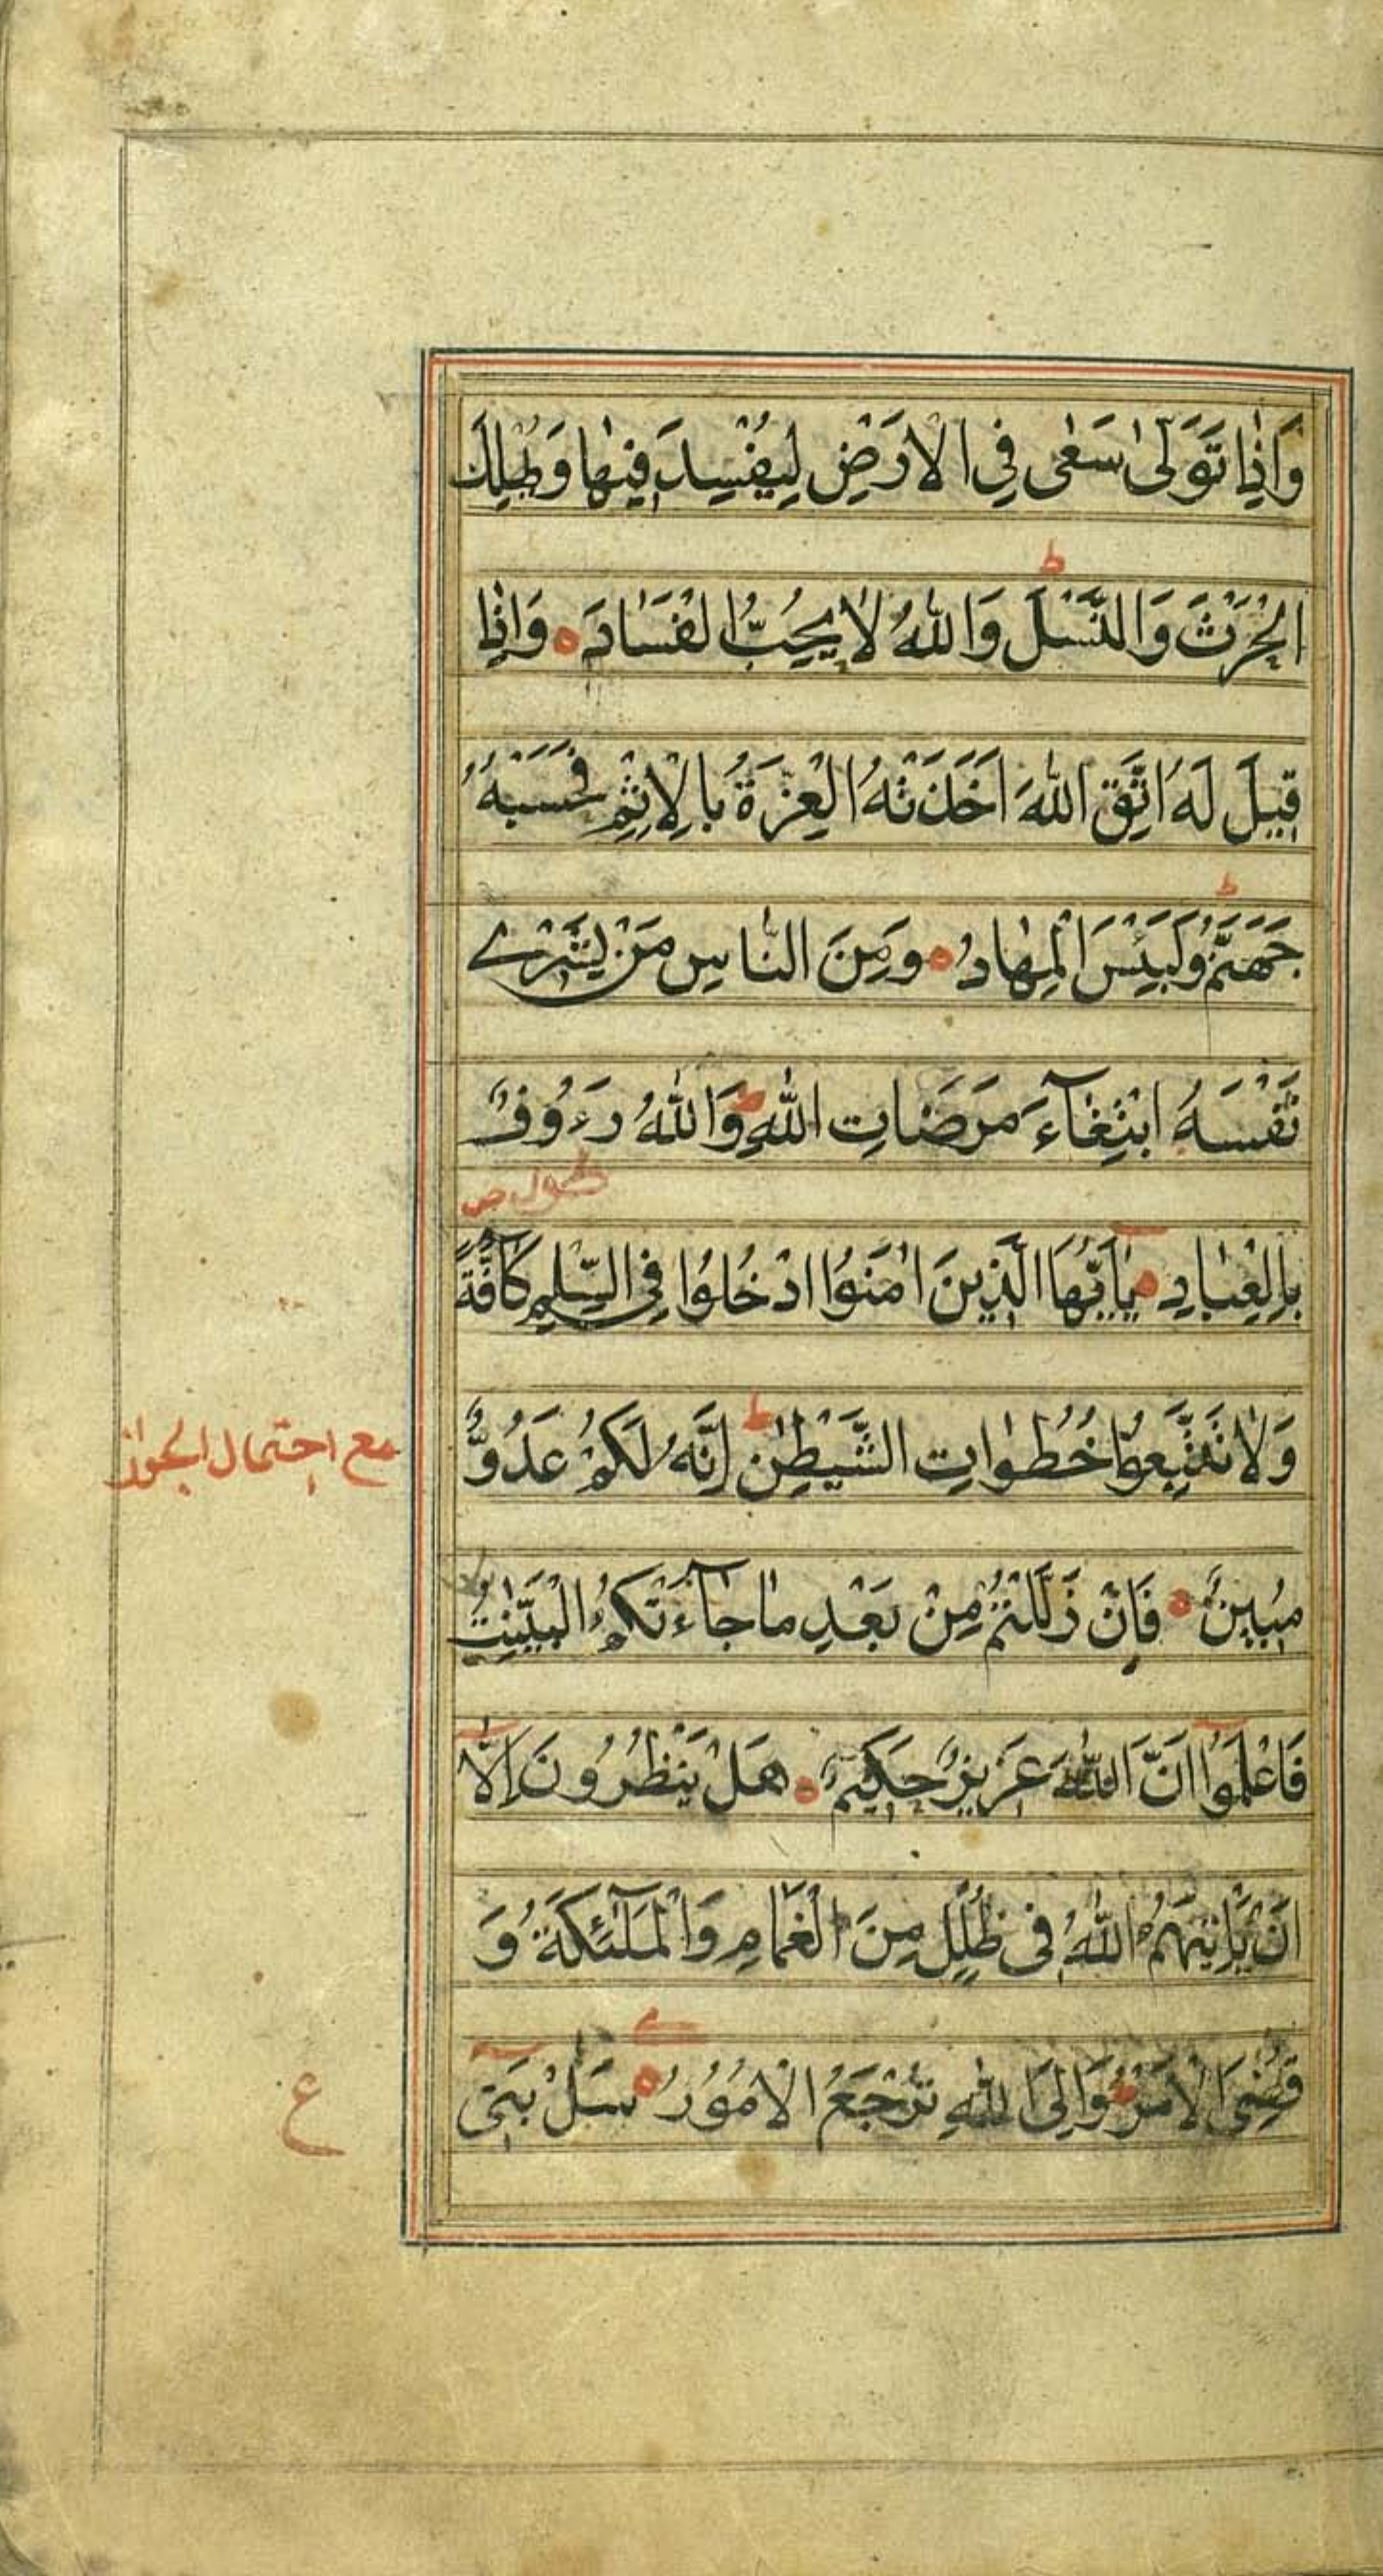 وَاِذَا تَوَلّٰى سَعٰى فِي الْاَرْضِ لِيُفْسِدَ فِيْهَا وَيُهْلِكَ
ط
الْحَرْثَ وَالنَّسْلَ وَاللّٰهُ لَا يُحِبُّ الْفَسَادَ ه وَاِذَا
قِيْلَ لَهُ اتَّقِ اللّٰهَ اَخَذَتْهُ الْعِزَّةُ بِالْاِثْمِ فَحَسْبُهٗ
ط
جَهَنَّمُ وَلَبِئْسَ الْمِهَادُ ه وَمِنَ النَّاسِ مَنْ يَّشْرِے
نَفْسَهُ ابْتِغَآءَ مَرْضَاتِ اللّٰهِ ط وَاللّٰهُ رَءُوْفٌ
بِالْعِبَادِ ه يٰٓاَيُّهَا الَّذِيْنَ اٰمَنُوا ادْخُلُوْا فِي السِّلْمِ كَآفَّةً
وَلَا تَتَّبِعُوْا خُطُوٰاتِ الشَّيْطٰنِ ط اِنَّهٗ لَكُمْ عَدُوٌّ
مع احتمال الجواز
مُبِيْنٌ ه فَاِنْ زَلَلْتُمْ مِنْ بَعْدِ مَا جَآءَتْكُمُ الْبَيِّنٰتُ
فَاعْلَمُوْٓا اَنَّ اللّٰهَ عَزِيْزٌ حَكِيْمٌ ه هَلْ يَنْظُرُوْنَ اِلَّآ
اَنْ يَّاْتِيَهُمُ اللّٰهُ فِى ظُلَلٍ مِنَ الْغَمَامِ وَالْمَلٰٓئِكَةُ وَ
قُضِىَ الْاَمْرُ ط وَاِلَى اللّٰهِ تُرْجَعُ الْاُمُوْرُ ه سَلْ بَنِىٓ
ع